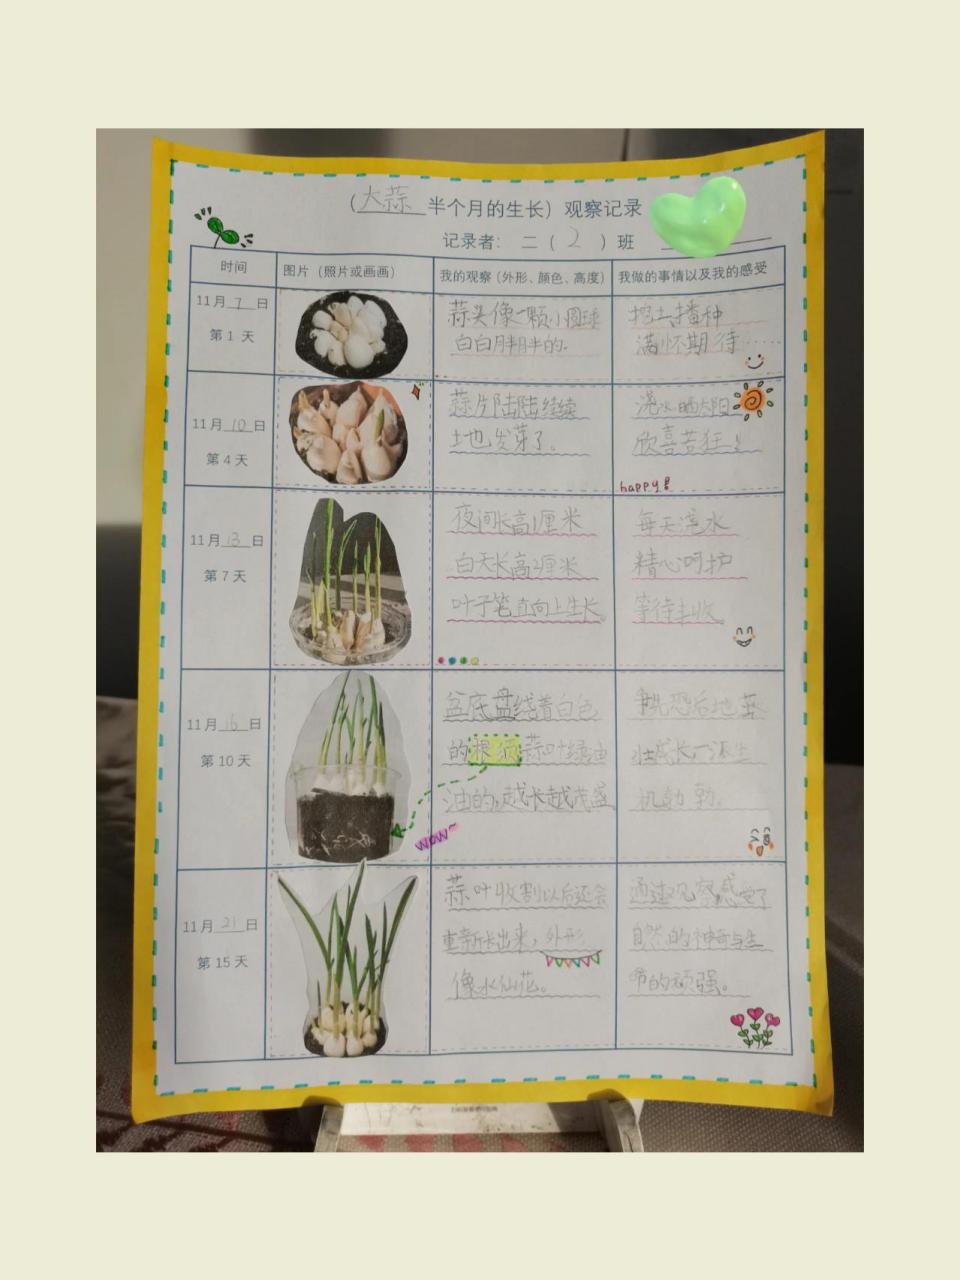 （大蒜 半个月的生长）观察记录
记录者： 二（ 2 ）班
时间
图片（照片或画画）
我的观察（外形、颜色、高度）
我做的事情以及我的感受
11月 7 日
第 1 天
蒜头像一颗小圆球
白白胖胖的.
挖土播种
满怀期待……
11月 10 日
第 4 天
蒜片陆陆续续
地发芽了。
浇水晒太阳
欣喜若狂！
happy!
11月 13 日
第 7 天
夜间长高1厘米
白天长高2厘米
叶子笔直向上生长。
每天浇水
精心呵护
等待丰收。
11月 16 日
第 10 天
盆底盘绕着白色
的根须蒜叶绿油
油的,越长越茂盛
wow~
争先恐后地茁
壮成长,一派生
机勃勃。
11月 21 日
第 15 天
蒜叶收割以后还会
重新长出来，外形
像水仙花。
通过观察感觉了
自然的神奇与生
命的顽强。